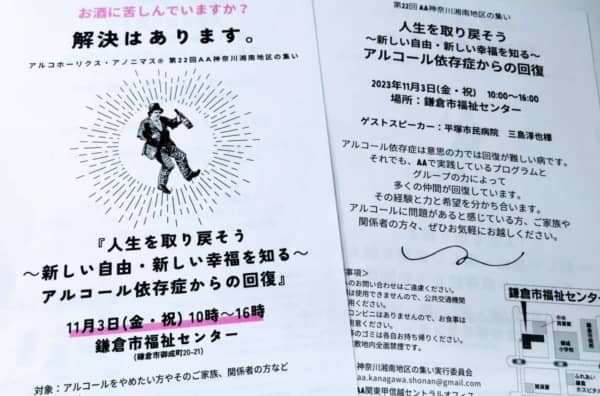 お酒に苦しんでいますか？
解決はあります。
アルコホーリクス・アノニマス® 第22回AA神奈川湘南地区の集い
『人生を取り戻そう
～新しい自由・新しい幸福を知る～
アルコール依存症からの回復』
11月3日(金・祝) 10時～16時
鎌倉市福祉センター
(鎌倉市御成町20-21)
対象：アルコールをやめたい方やそのご家族、関係者の方など
第22回 AA神奈川湘南地区の集い
人生を取り戻そう
～新しい自由・新しい幸福を知る～
アルコール依存症からの回復
2023年11月3日(金・祝) 10:00～16:00
場所：鎌倉市福祉センター
ゲストスピーカー：平塚市民病院 三島淳也様
アルコール依存症は意思の力では回復が難しい病です。
それでも、AAで実践しているプログラムと
グループの力によって
多くの仲間が回復しています。
その経験と力と希望を分かち合います。
アルコールに問題があると感じている方、ご家族や
関係者の方々、ぜひお気軽にお越しください。
事項＞
のお問い合わせはご遠慮ください。
は使用できませんので、公共交通機関
用ください。
コンビニはありませんので、お食事は
用意ください。
等のゴミは各自お持ち帰りください。
敷地内全面禁煙です。
神奈川湘南地区の集い実行委員会
aa.kanagawa.shonan@gmail.com
AA関東甲信越セントラルオフィス
鎌倉市福祉センター
御成
小学校
ふれあい
鎌倉
ホスピタル